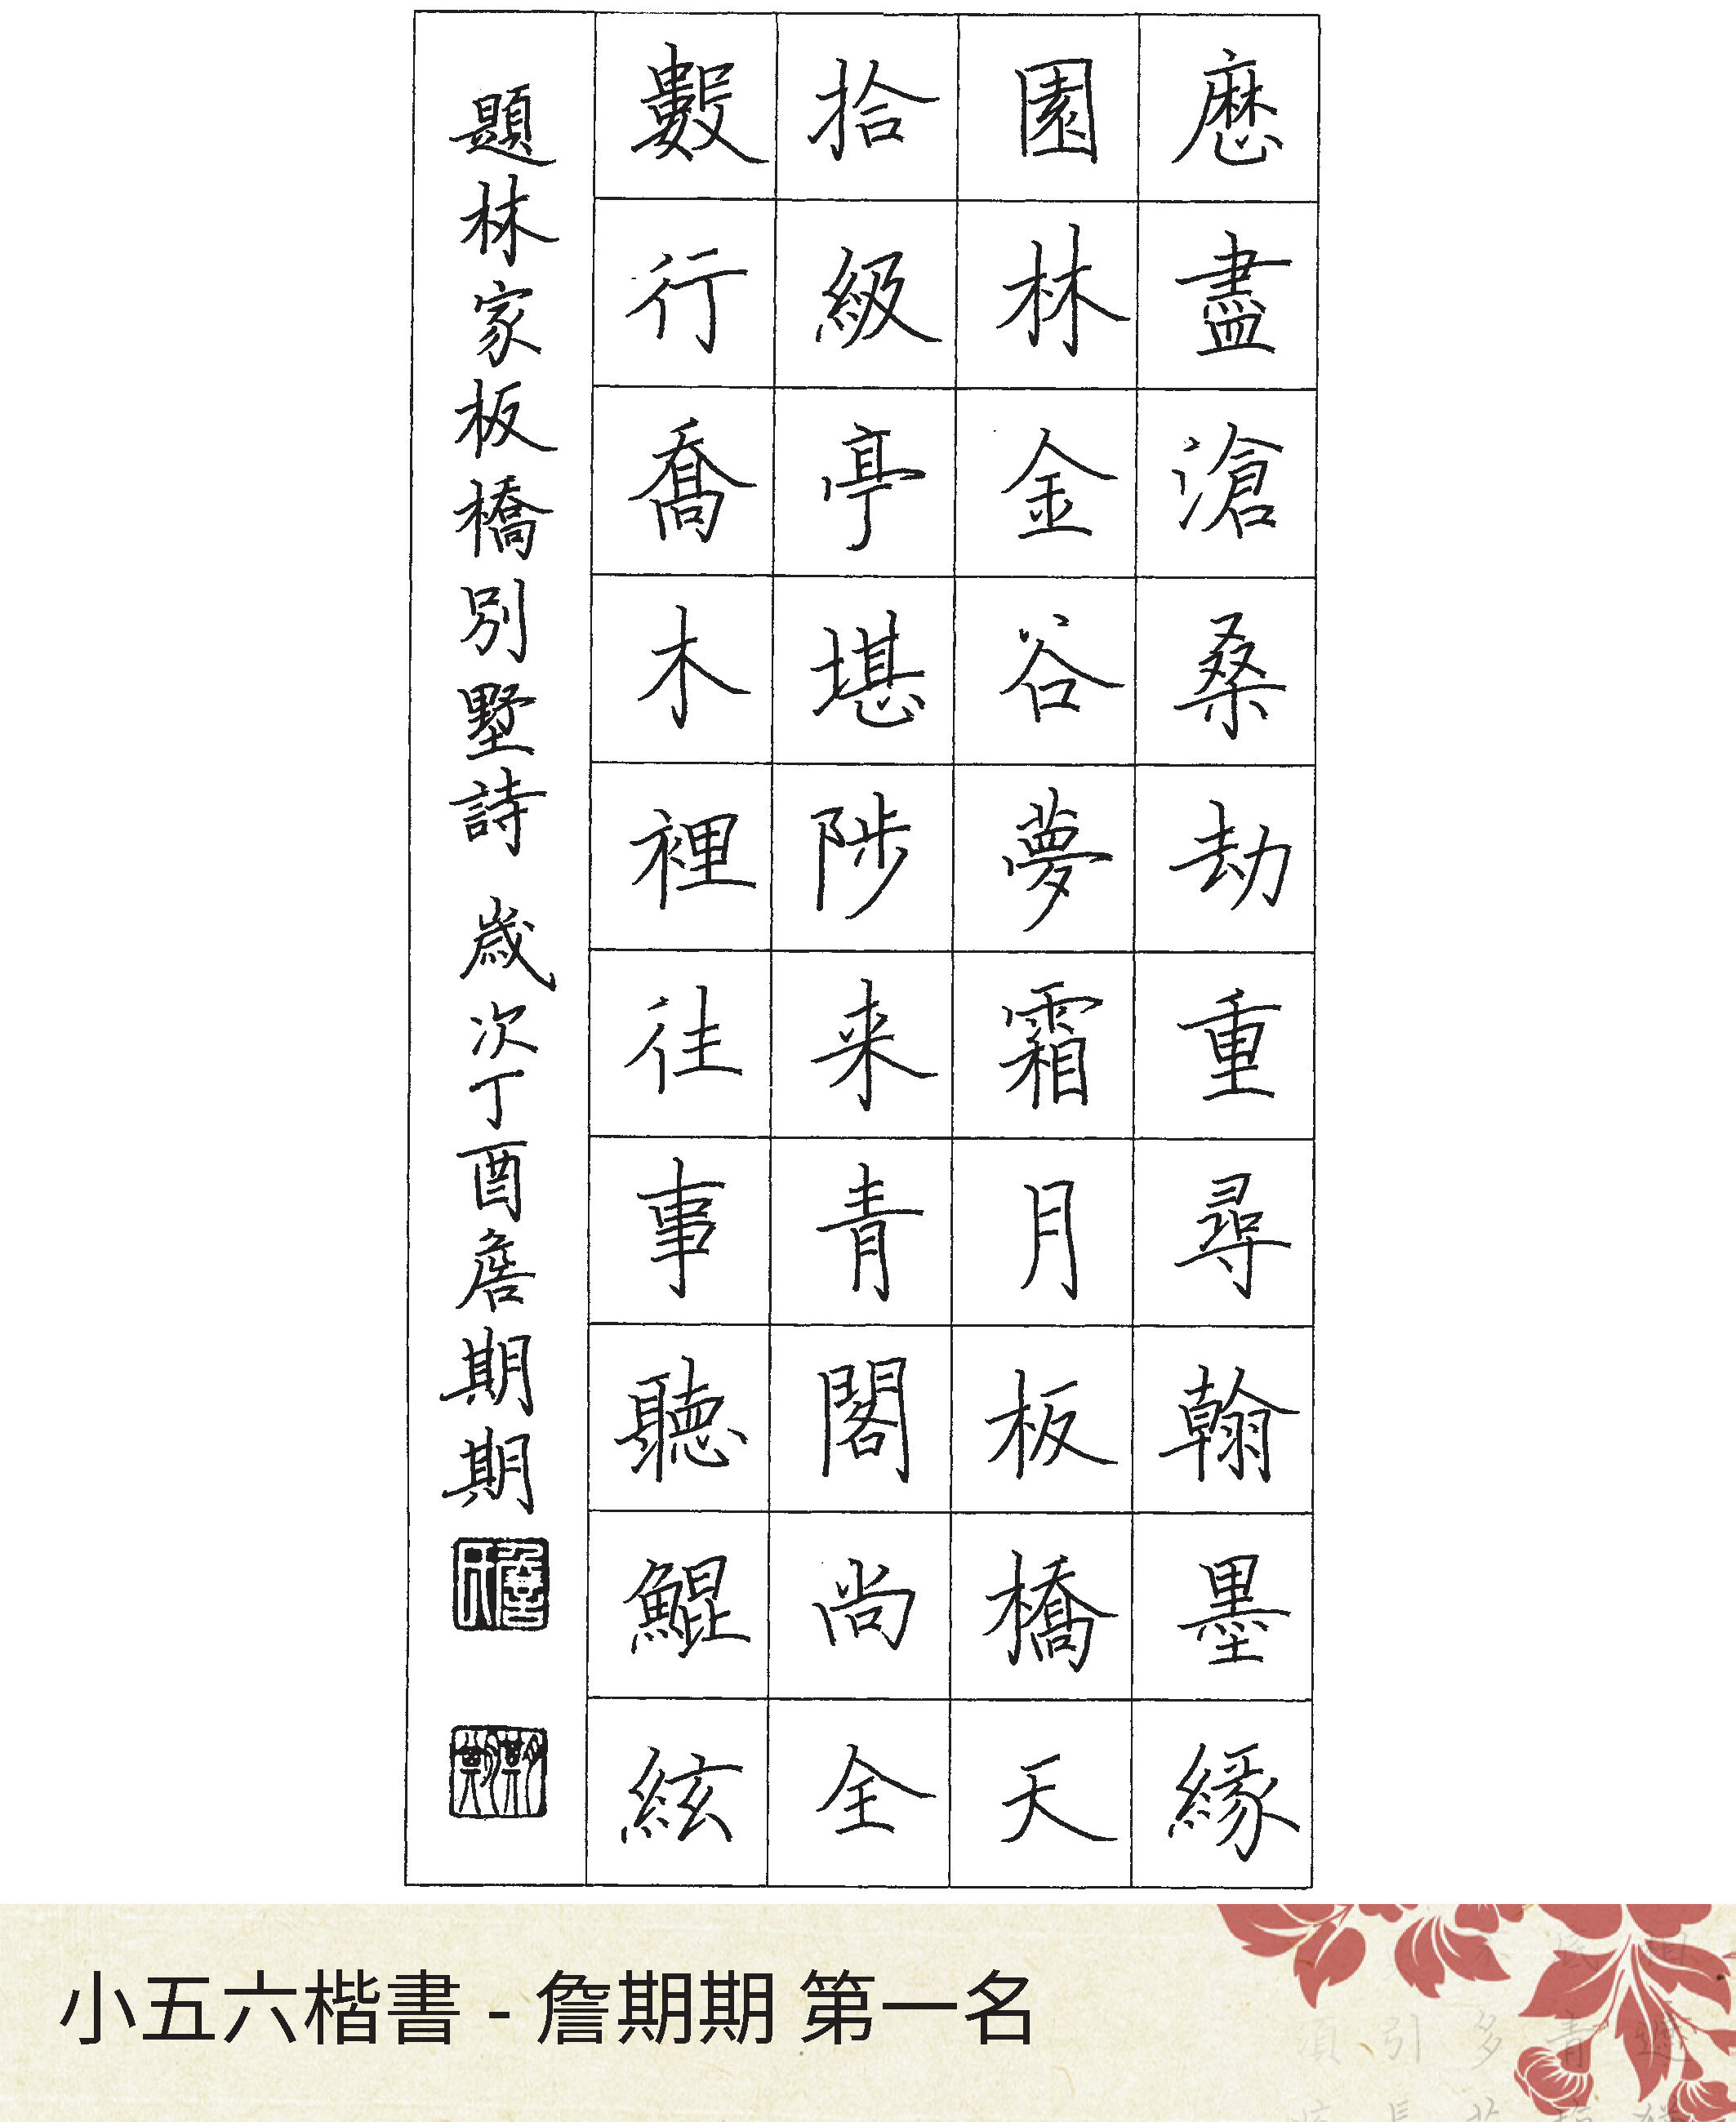 歷盡滄桑劫重尋翰墨緣
園林金谷夢霜月板橋天
拾級亭堪陟来青閣尚全
數行喬木裡往事聽鯤絃
題林家板橋別墅詩 歲次丁酉詹期期
小五六楷書 - 詹期期 第一名